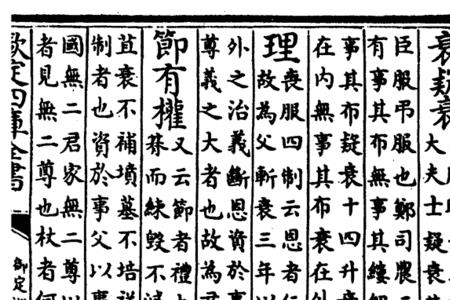 衰疑衰
大夫士疑衰
臣服弔服也鄭司農
有事其布無事其縷
事其布疑衰十四升
在内無事其布衰在外
理
喪服四制云恩者仁
故為父斬衰三年以
外之治義斷恩資於事
尊義之大者也故為君
節有權
又云節者禮
朞而練毀不滅
苴衰不補墳墓不培祥
制者也資於事父以事
國無二君家無二尊以
者見無二尊也杖者何
欽定四庫全書
御定